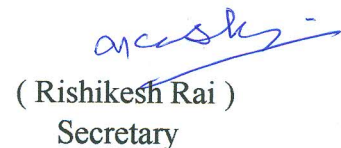 ( Rishikesh Rai )
Secretary